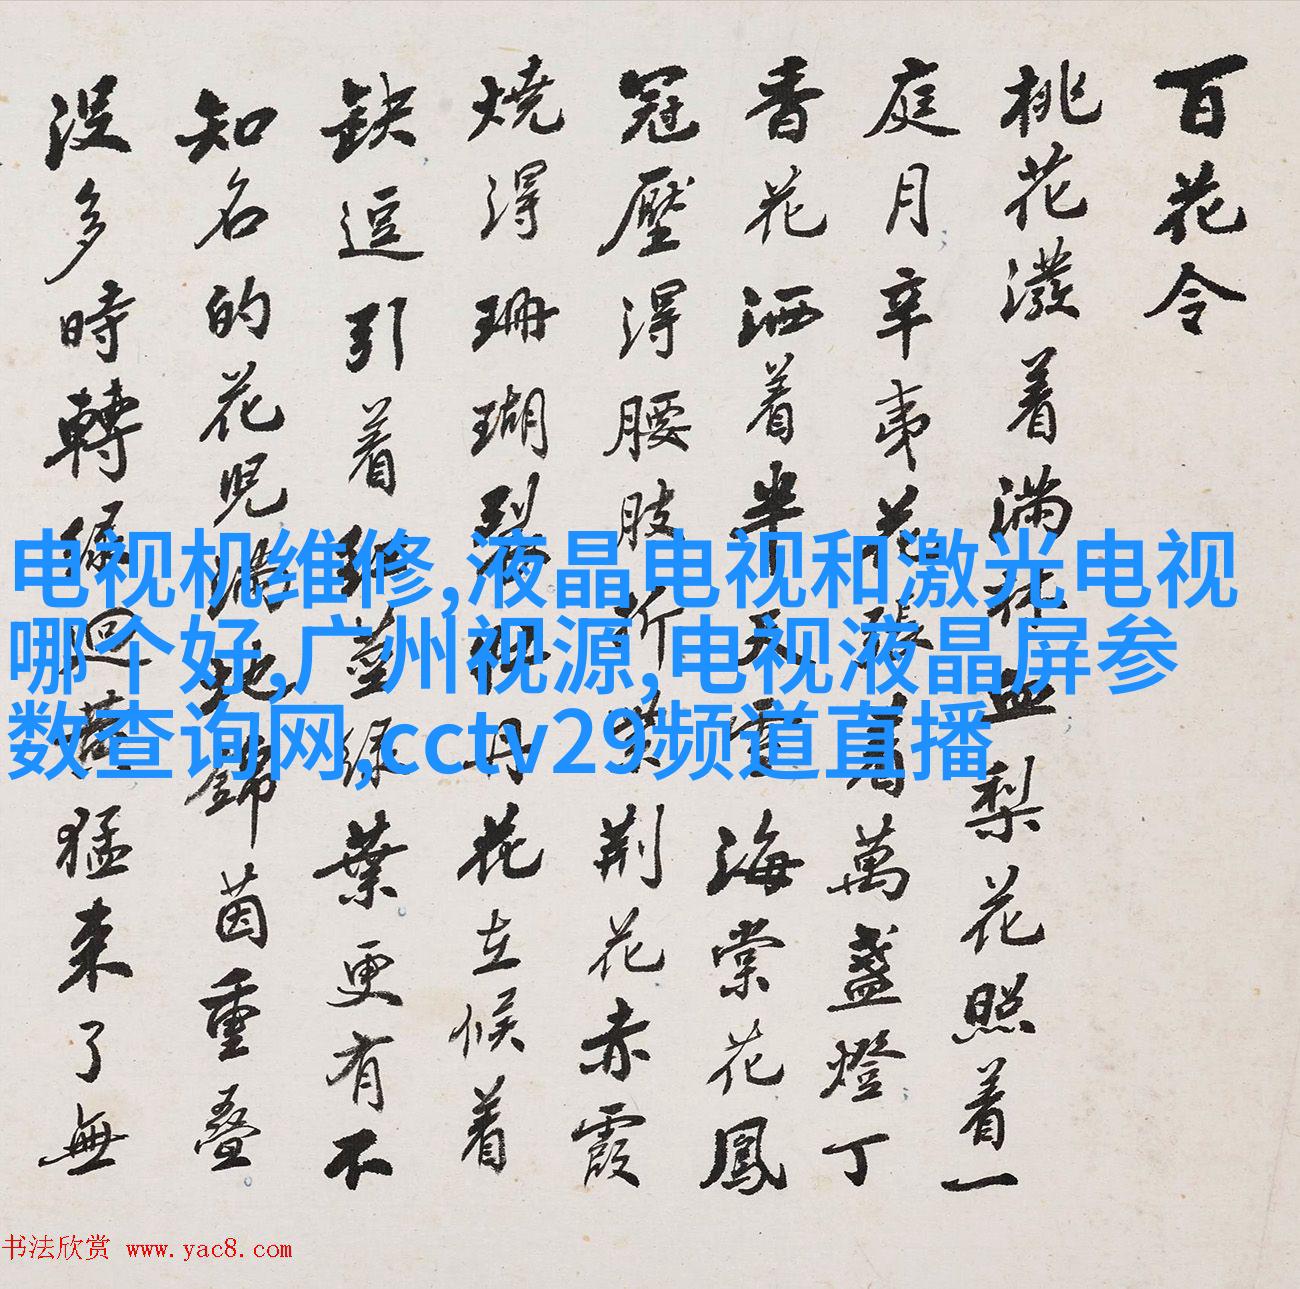 百花令
桃花潑着滿杜血梨花照着一
庭月辛夷花張着萬盞燈丁
香花洒着半天雪海棠花鳳
冠壓得腰肢折英荊花赤霞
燒得珊瑚裂牡丹花立候着
缺逗引着珊藍綠葉更有不
知名的花児滿地錦茵重疊
没多時轉
猛来了無
电视机维修,液晶电视和激光电视
哪个好,广州视源,电视液晶屏参
数查询网,cctv29频道直播
书法欣赏 www.yac8.com